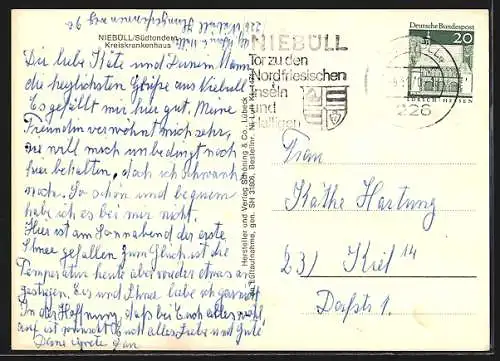 226 Niebüll Hungerburgweg 26
NIEBÜLL/Südtondern
Kreiskrankenhaus
Dir liebe Käte und Deinem Mann
die herzlichsten Grüße aus Niebüll
Es gefällt mir hier gut. Meine
Freundin verwöhnt mich sehr,
sie will mich unbedingt noch
hier behalten, doch ich schwanke
noch. So schön und bequem
habe ich es bei mir nicht.
Hier ist am Sonnabend der erste
Schnee gefallen zum Glück ist die
Temperatur heute aber wieder etwas an-
gestiegen. Eis und Schnee liebe ich gar nicht
In der Hoffnung, daß bei Euch alles wohl
auf ist wünscht Euch alles Liebe und Gute
Deine Grete
Hersteller und Verlag Schöning & Co., Lübeck
Luftaufnahme, gen. SH 3306, Bestellnr. Ni
NIEBÜLL
Tor zu den
Nordfriesischen
Inseln
und
Halligen
226
Deutsche Bundespost
20
LORSCH/HESSEN
Frau
Käthe Hartung
23) Kiel 14
Dorfstr 1.